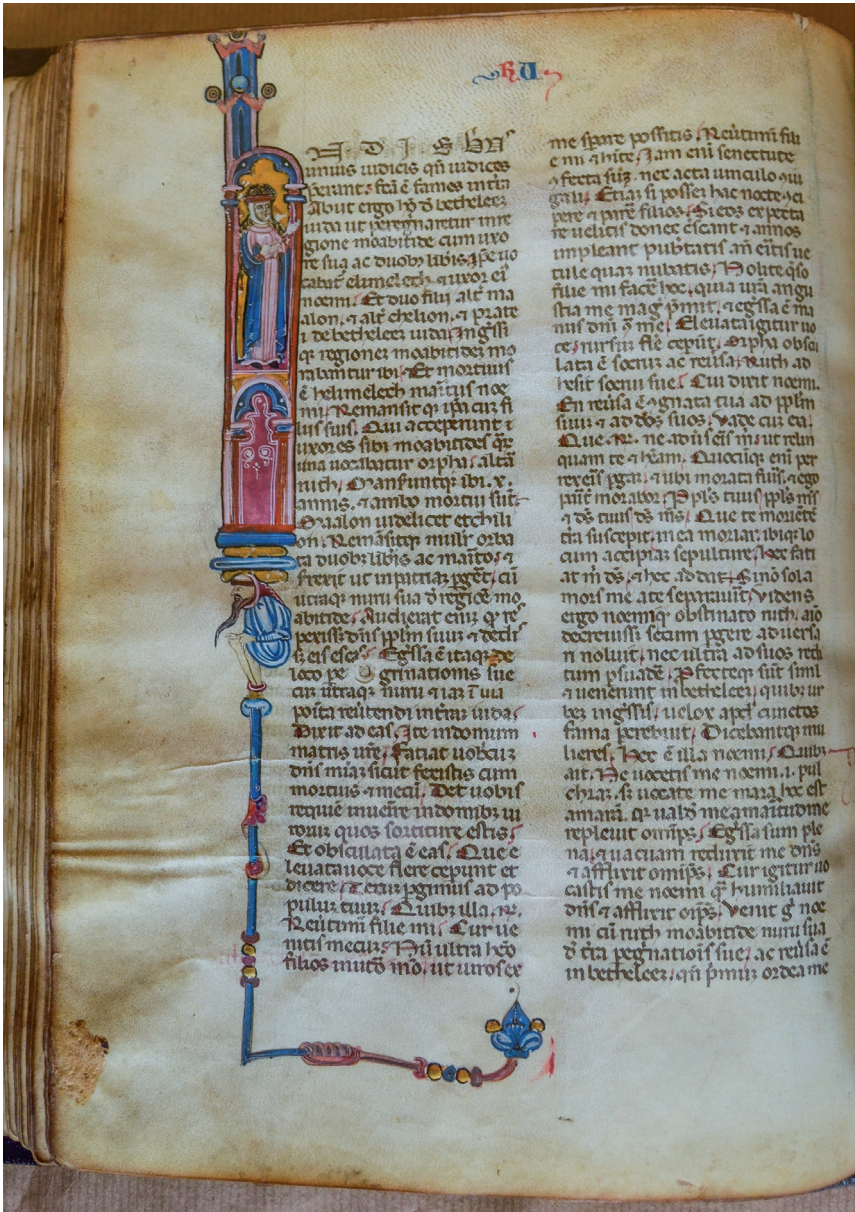 RU
N DIEBUS
unius iudicis qn̄ iudices
p̄erant. fc̄a ē fames in tr̄a
Abiit ergo hō d̄ bethleez
iuda ut peregrinaretur in re
gione moabitide cum uxo
re sua ac duob; lib̄is. ip̄e uo
cabat᷑ elimelech. ⁊ uxor ei᷒
noemi. Et duo filii alt᷑ ma
alon. ⁊ alt᷑ chelion. ⁊ ef̄rate
i de betheleez iuda. Ingr̄ssi
q; regionez moabitidez mo
rabantur ibi. Et mortuus
ē helimelech mar̄itus noe
mi. Remansit q; ip̄a cuz fi
liis suis. Qui acceperunt ⁊
uxores sibi moabitides q̄r̄
una uocabatur orpha. alt̄a
ruth. Manserunt q; ibi .x.
annis. ⁊ ambo mortui sūt.
Maalon uidelicet et chili
on. Remāsitq; muli᷑ orba
ta duob; lib̄is ac mar̄ito. ⁊
surrexit ut in patriaz p̄geret. cū
utraq; nuru sua d̄ regiōe mo
abitide. Audierat eniz q̄ re᷒
pexiss; dn̄s pp̄lm suuz ⁊ dediss
; eis escas. Egr̄ssa ē itaq; de
loco pe grinationis sue
cuz ut̄raq; nuru ⁊ iaz ī uia
posita reūtendi in tr̄az iuda.
Dixit ad eas. Ite in domum
matris ur̄e. Fatiat uobcuz
dn̄s mīaz sicut fecistis cum
mortuis ⁊ mecū. Det uobis
requiē inuēire in domib; ui
roruz quos sortiture estis.
Et obsculata ē eas. Que e
leuata uoce flere ceperunt et
dicere. Tecuz p̄gimus ad po
puluz tuuz. Quib; illa. R̄.
Reūtimi filie mi. Cur ue
nitis mecuz. Nū ultra hēo
filios in ut̄o mō. ut uiros ex
me sperare possitis. Reūtimi filie
e mi ⁊ h̄ite. Jam eni senectute
⁊fecta suz. nec acta uinculo ⁊iu
gali. Etiaz si possez hac nocte ⁊ci
pere ⁊ par̄e filios. Si eos expecta
re uelitis donec c̄scant ⁊ annos
impleant pub̄tatis an̄ er̄itis ue
tule quaz nubatis. Nolite q̄so
filie mi fac̄e hoc. quia ur̄a angu
stia me mag᷒ p̄mit. ⁊ egr̄ssa ē ma
nus dn̄i ⁊ me. Eleuata igitur uo
ce. rursuz fle᷑ cep̄ūt. Orpha obscu
lata ē socruz ac reūsa. Ruth ad
hesit socrui sue. Cui dixit noemi.
En reūsa ē ⁊gnata tua ad pp̄lm
suuz ⁊ ad d̄os suos. Vade cuz ea.
Que. R̄. ne ad ūseis m̄ ut relin
quam te ⁊ h̄eam. Quocūq; eni per
rexeis p̄gaz. ⁊ ubi morata fuis. ⁊ ego
pait̄ morabor. Pp̄ls tuus pp̄ls m̄s
⁊ d̄s tuus d̄s m̄s. Que te moriētē
tr̄a susceperit. in ea moriar. ibiq; lo
cum accipiaz sepulture. Hec fati
at m̄ d̄s. ⁊ hec addat. Si nō sola
mors me ⁊ te separauit. Videns
ergo noemi q; obstinato ruth. aīo
decreuiss; secum p̄gere aduersa
ri noluit. nec ultra ad suos redi
tum psuade᷑. P̄fecteq; sūt siml̄
⁊ uenerunt in betheleez. quib; ur
bez ingr̄ssis. uelox ap̄d cunctos
fama p̄crebuit. Dicebantq; mu
lieres. Hec ē illa noemi. Quib;
ait. Ne uocetis me noemi .i. pul
chraz. s; uocate me mara hoc est
amarā. q; ualde me amaritudine
repleuit omīps. Egr̄ssa sum ple
na. ⁊ uacuam reduxit me dn̄s
⁊ afflixit omīps. Cur igitur uo
catis me noemi q̄ humiliauit
dn̄s ⁊ afflixit oīps. Venit g᷒ noe
mi cū ruth moabitide nuru sua
d̄ tr̄a peg̓natiōis sue. ac reūsa ē
in betheleez. qn̄ p̄muz ordea me